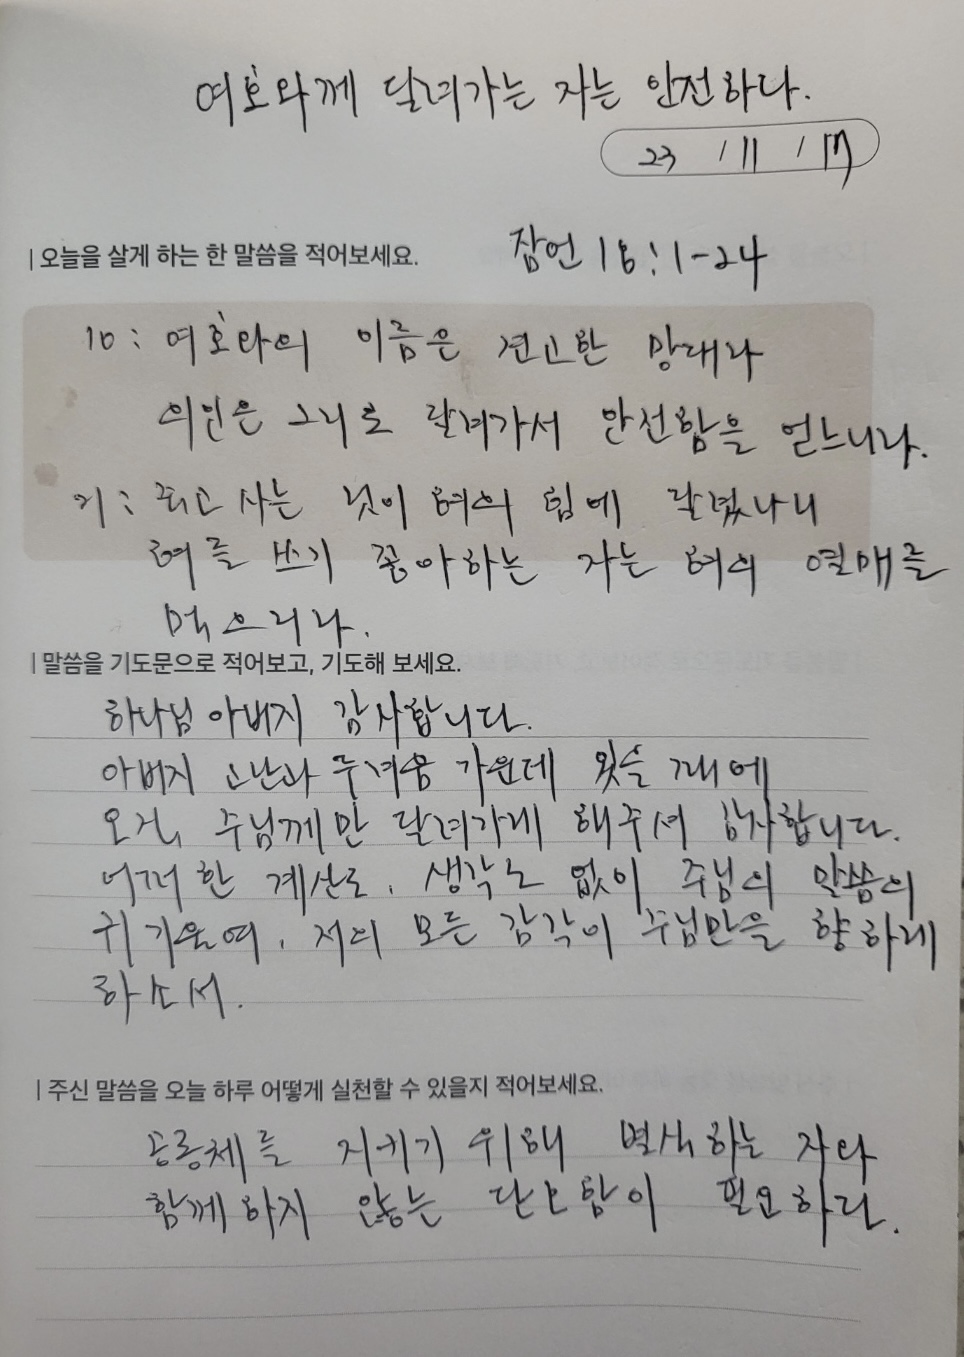 여호와께 달려가는 자는 안전하다.
23 / 11 / 17
| 오늘을 살게 하는 한 말씀을 적어보세요.
잠언 18:1-24
10: 여호와의 이름은 견고한 망대라
의인은 그리로 달려가서 안전함을 얻느니라.
21: 죽고 사는 것이 혀의 힘에 달렸나니
혀를 쓰기 좋아하는 자는 혀의 열매를
먹으리라.
| 말씀을 기도문으로 적어보고, 기도해 보세요.
하나님 아버지 감사합니다.
아버지 고난과 두려움 가운데 있을 때에
오직 주님께만 달려가게 해주셔 감사합니다.
어떠한 계산도, 생각도 없이 주님의 말씀의
귀 기울여, 저의 모든 감각이 주님만을 향하게
하소서.
| 주신 말씀을 오늘 하루 어떻게 실천할 수 있을지 적어보세요.
공동체를 지키기 위해 범석하는 자와
함께하지 않는 단호함이 필요하다.